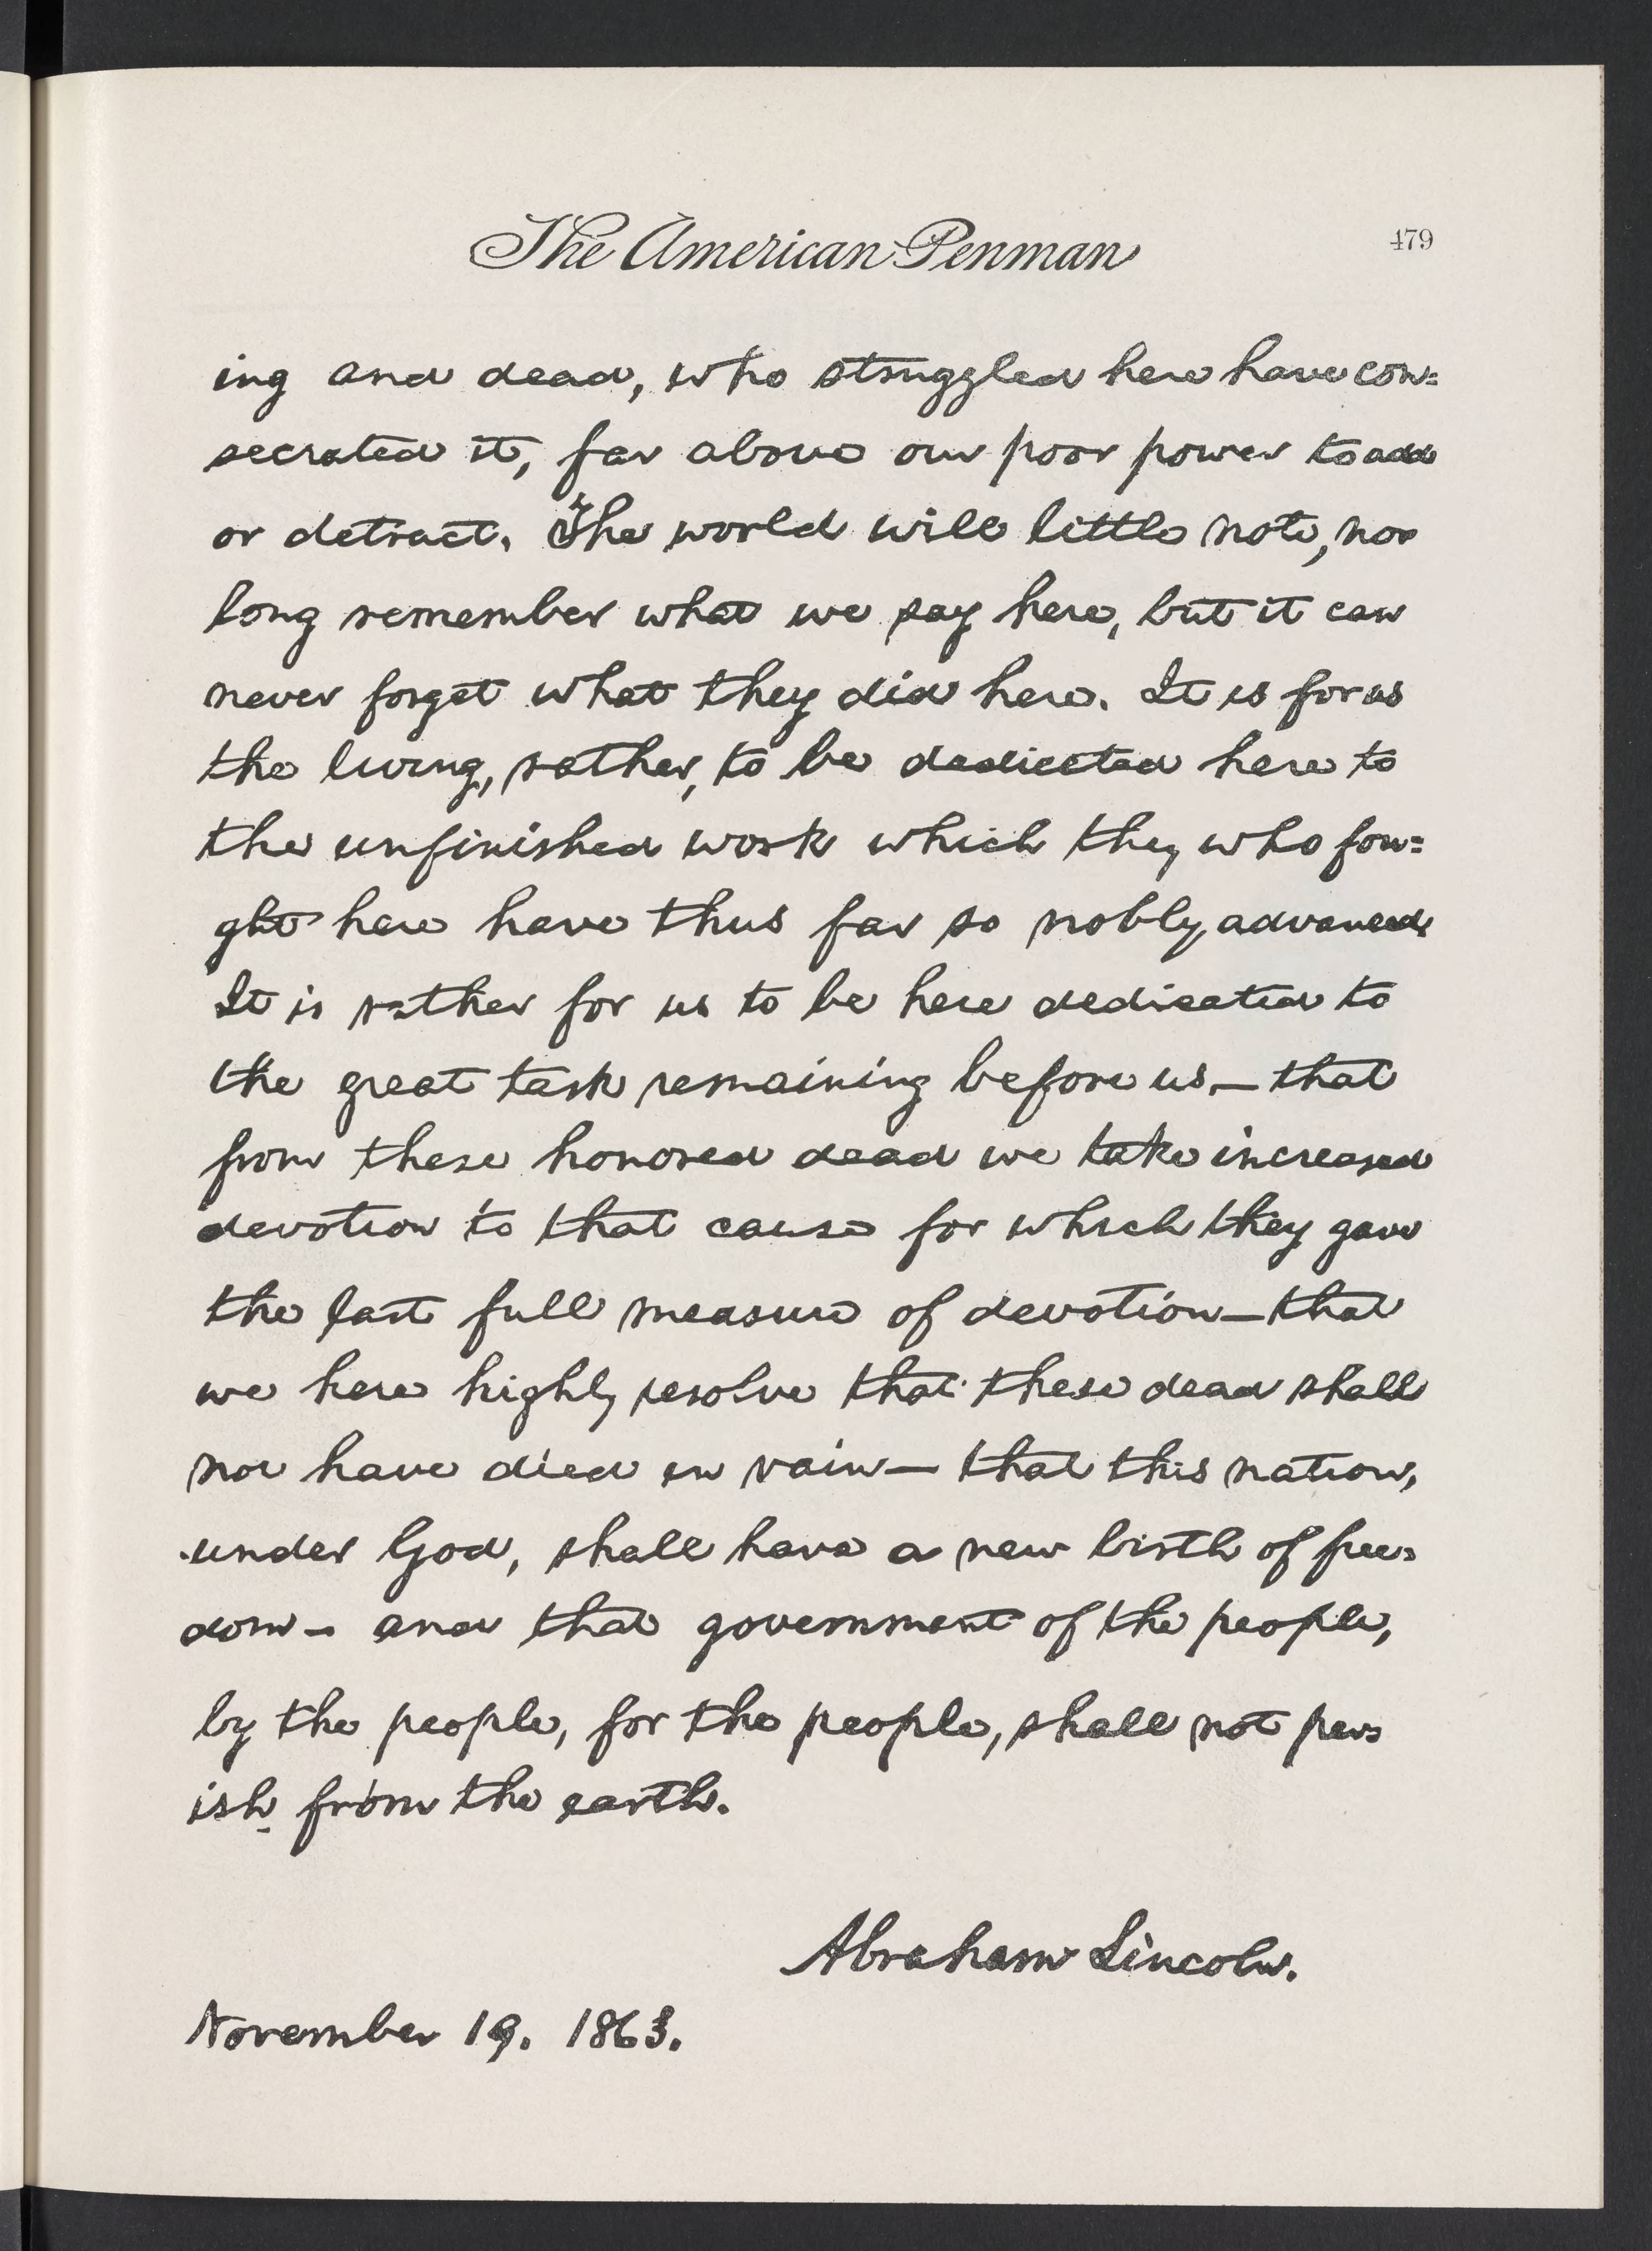 The American Penman
479
ing and dead, who struggled here have con=
secrated it, far above our poor power to add
or detract. The world will little note, nor
long remember what we say here, but it can
never forget what they did here. It is for us
the living, rather, to be dedicated here to
the unfinished work which they who fou=
ght here have thus far so nobly advanced.
It is rather for us to be here dedicated to
the great task remaining before us — that
from these honored dead we take increased
devotion to that cause for which they gave
the last full measure of devotion — that
we here highly resolve that these dead shall
not have died in vain — that this nation,
under God, shall have a new birth of free=
dom — and that government of the people,
by the people, for the people, shall not per=
ish from the earth.
Abraham Lincoln.
November 19. 1863.